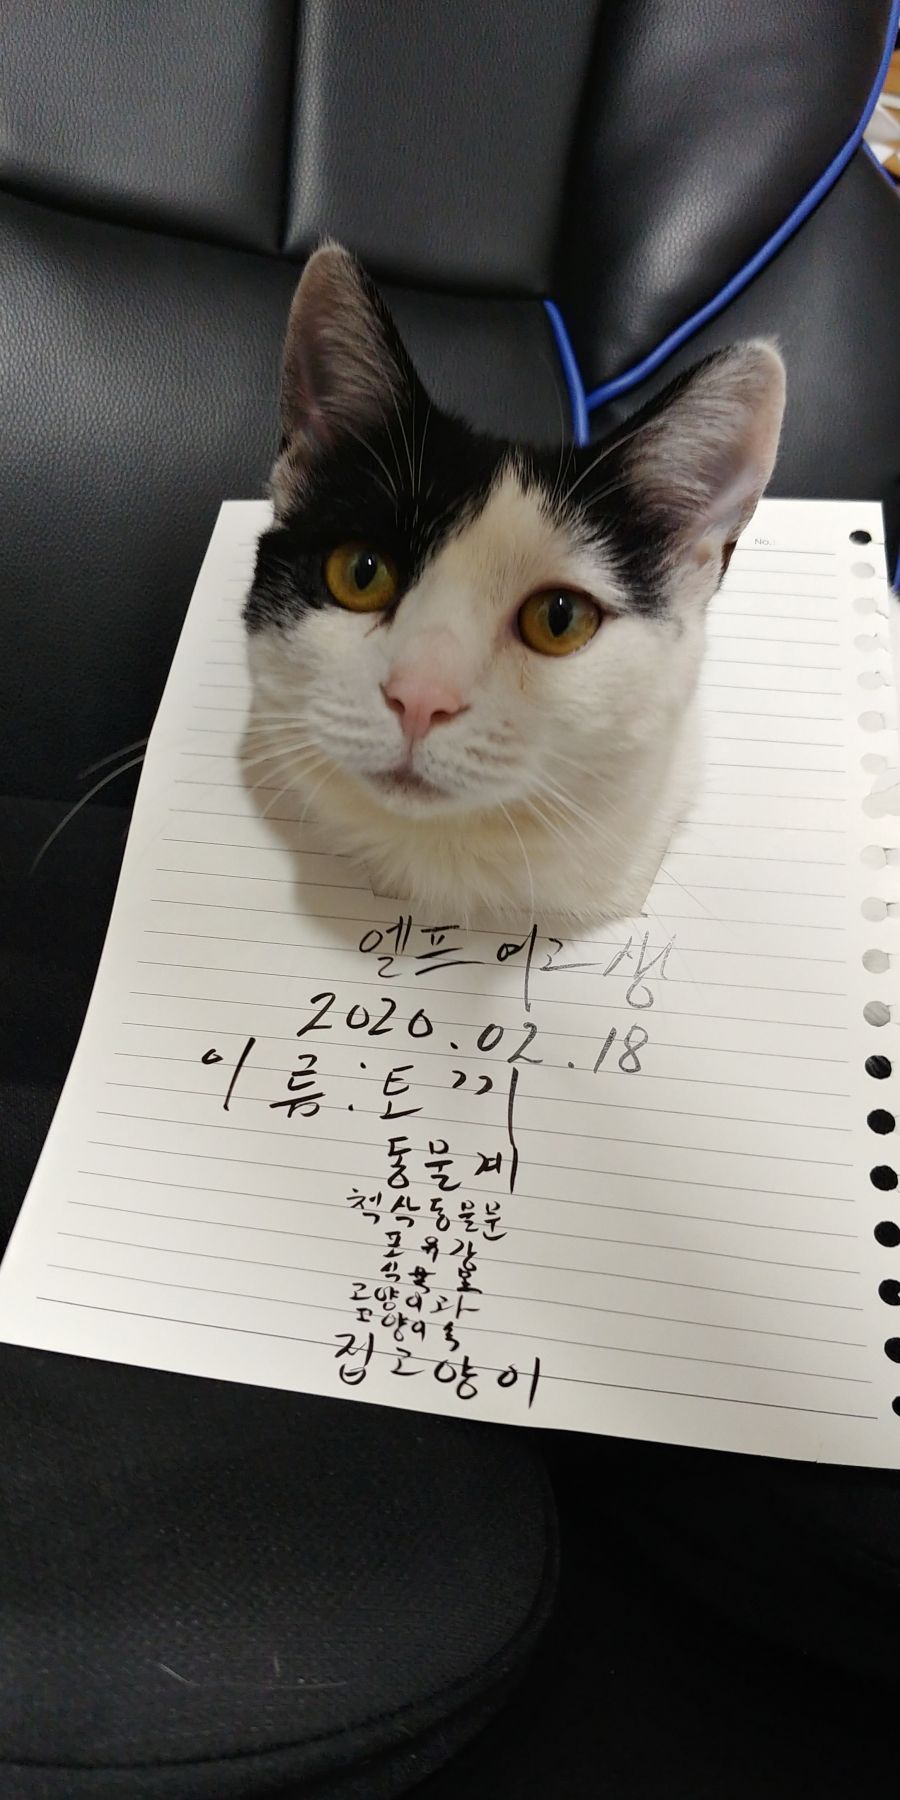 No.
엘프 여고생
2020.02.18
이름:토끼
동물계
척삭동물문
포유강
식육목
고양이과
고양이속
집고양이